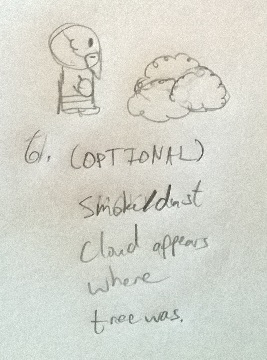 6. (OPTIONAL)
Smoke/dust
Cloud appears
where
tree was.